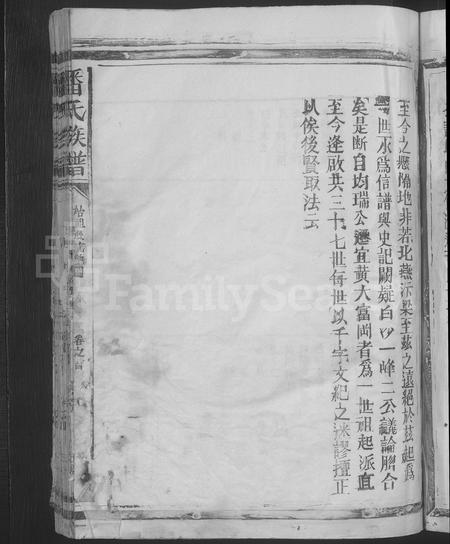 至今之懸隔地非若北燕沂梁至茲之遠絕於茲起爲
世永爲信譜與史記闕疑白沙一峰二公議論脗合
矣是斷自均瑞公遷宜黃大富岡者爲一世祖起派直
至今逢啟共三十七世每世以千字文紀之迷謬擅正
以俟後賢取法云
潘氏族譜
卷之首
FamilySearch